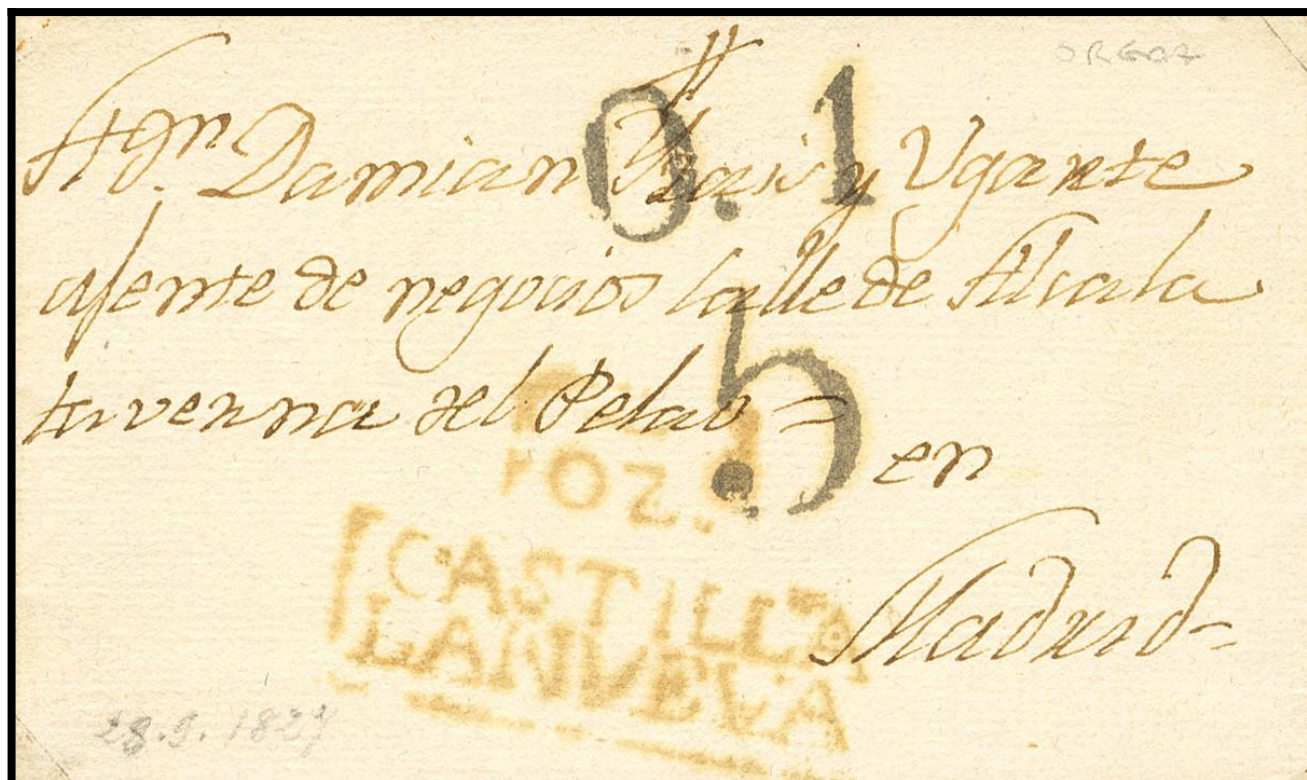 ORGAZ
0.1
A Dn. Damian y Ugarte
ajente de negocios Calle de Alcala
taverna del Pelao =
5
en
OZ.
CASTILLA
LANUEVA
Madrid-
28.9.1827